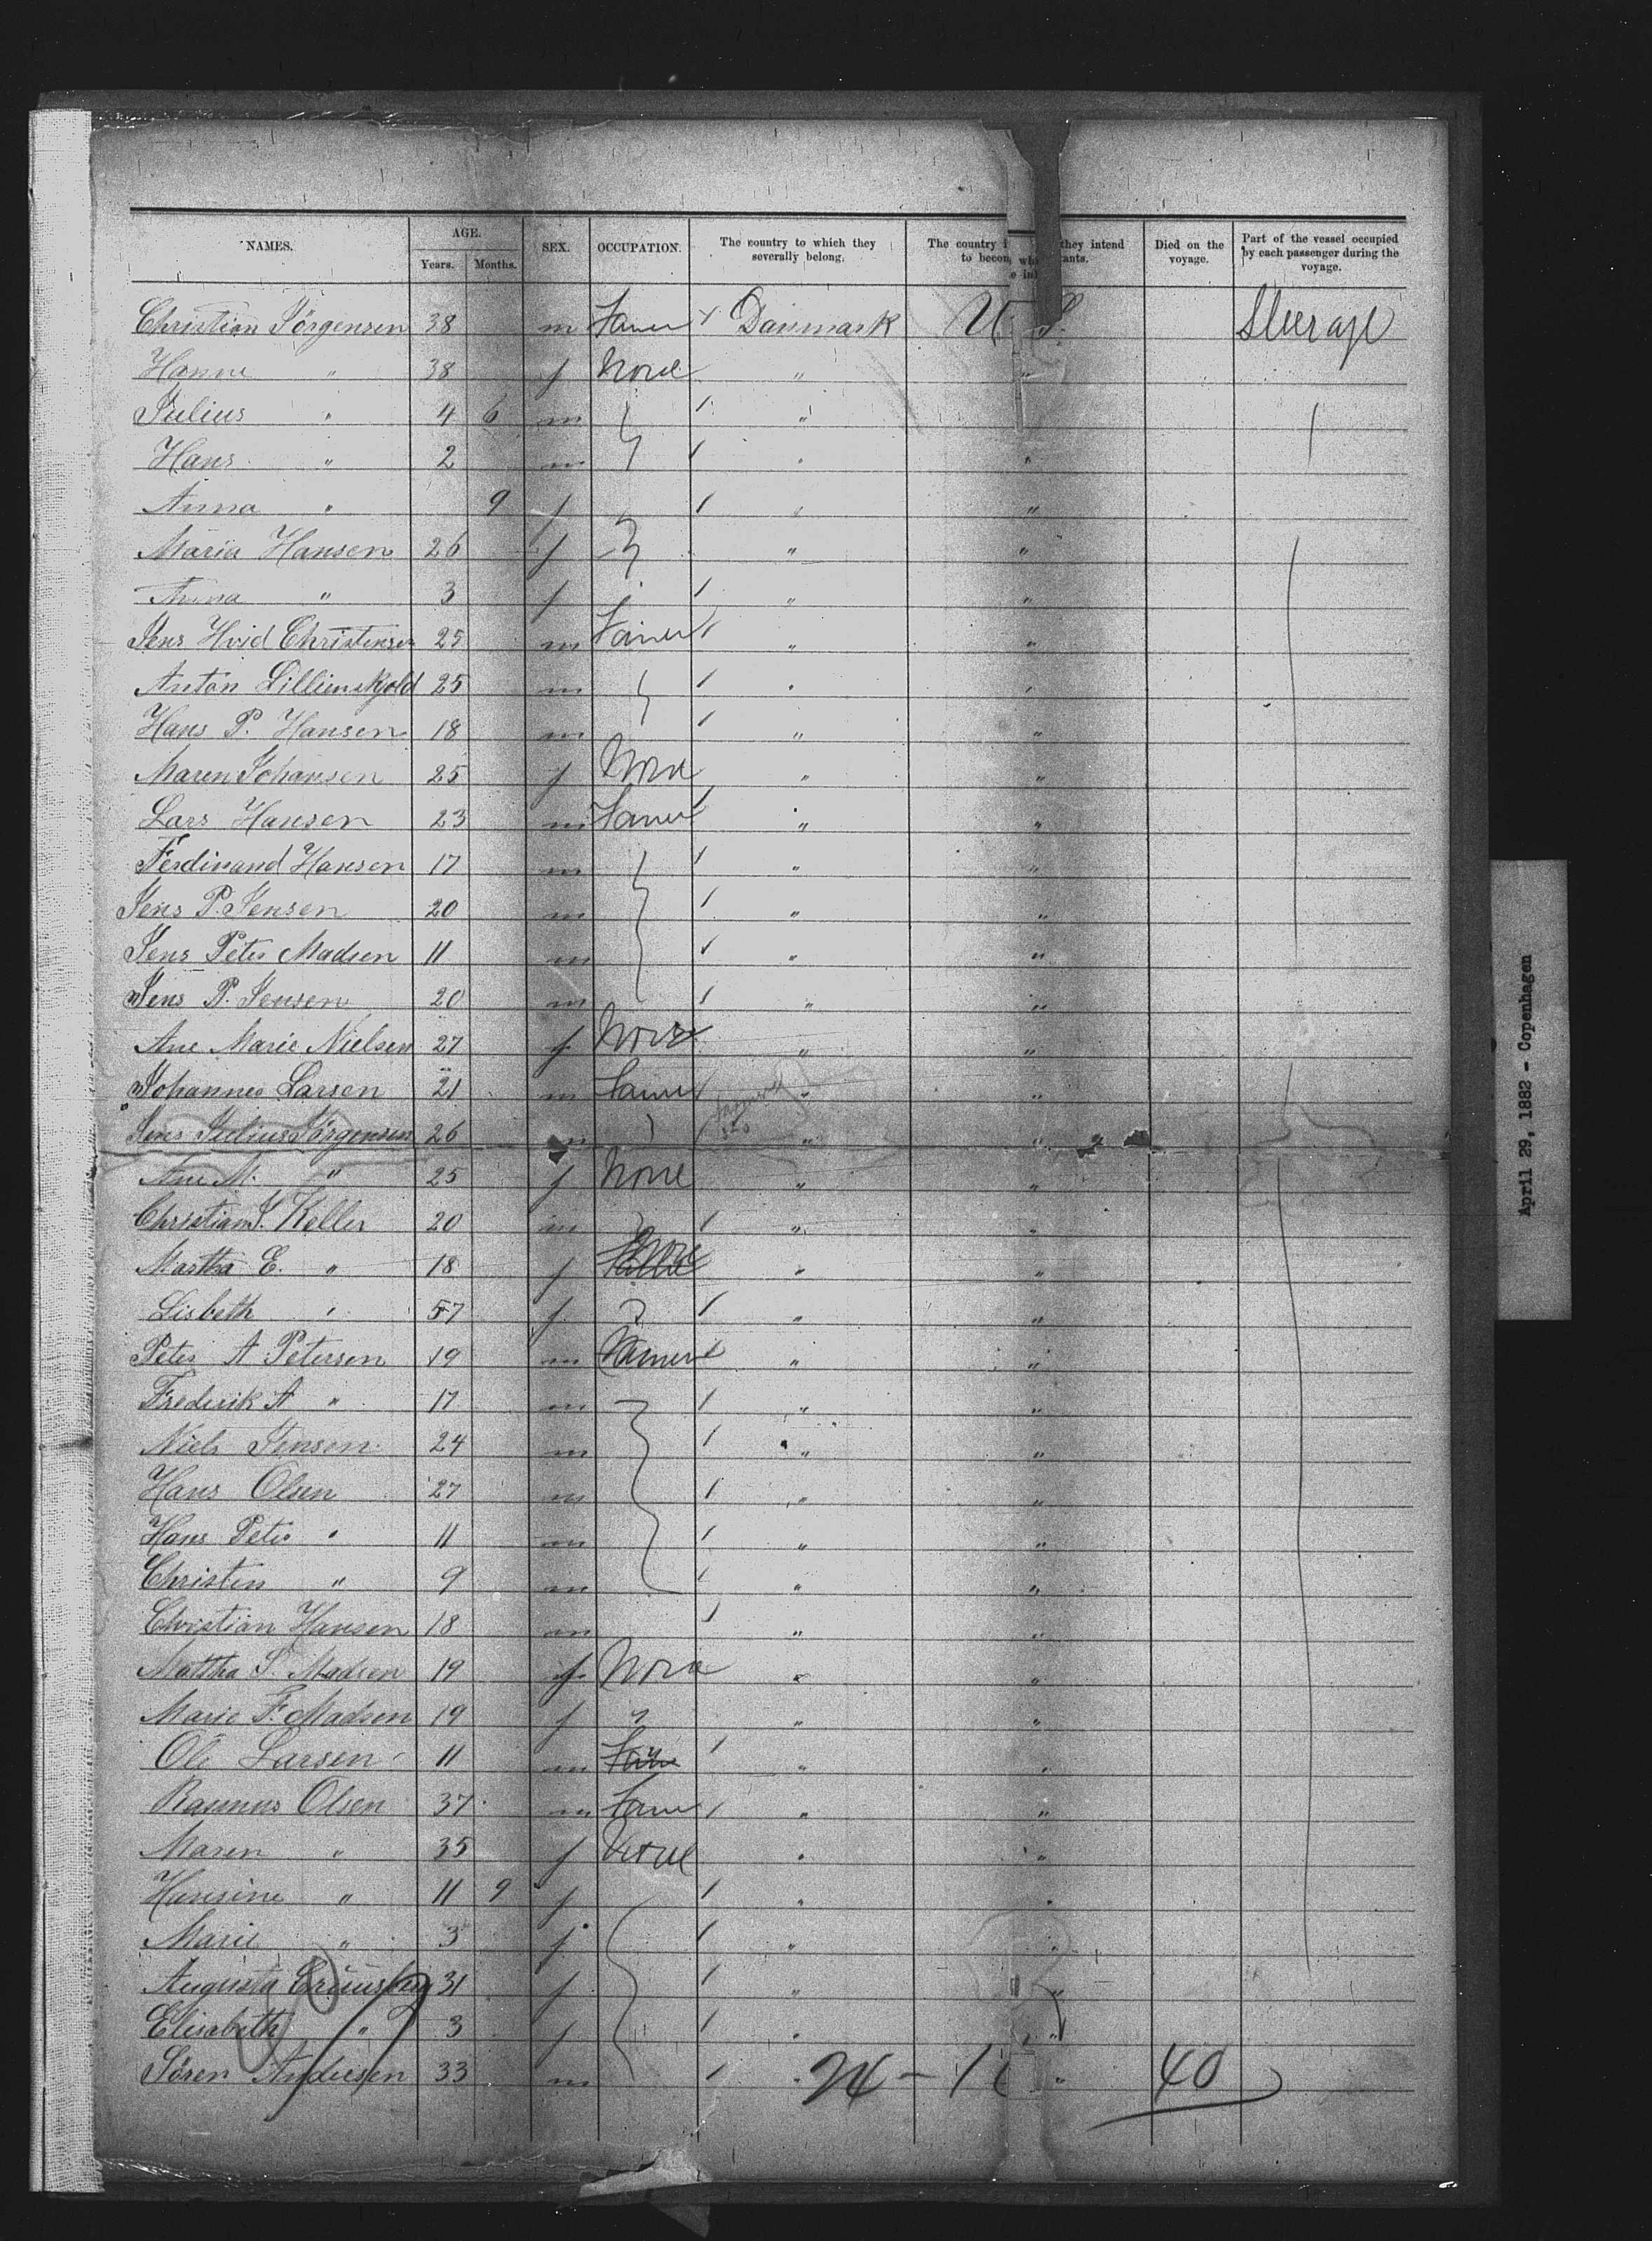 NAMES. AGE. SEX. OCCUPATION. The country to which they severally belong. The country they intend to becom ants. Died on the voyage. Part of the vessel occupied by each passenger during the voyage.
Years. Months.
Christian Jörgensen 38 m Danmark U. S. Steerage
Hanne " 38 f None " "
Julius " 4 6 m " "
Hans " 2 m " "
Anna " 9 f " "
Maria Hansen 26 f " "
Anna " 3 f " "
Jens Hvid Christensen 25 m " "
Anton 25 m " "
Hans P. Hansen 18 m " "
Maren Johansen 25 f None " "
Lars Hansen 23 m " "
Ferdinand Hansen 17 m " "
Jens P. Jensen 20 m " "
Jens Peter Madsen 11 m " "
Jens P. Jensen 20 m " "
Ane Marie Nielsen 27 f None " "
Johannes Larsen 21 m " "
Jens Julius Jörgensen 26 m " "
Ane M. " 25 f None " "
Christian J. Keller 20 m " "
Martha E. " 18 f None " "
Lisbeth " 57 f " "
Peter A Petersen 19 m " "
Frederik A " 17 m " "
Niels Jensen 24 m " "
Hans Olsen 27 m " "
Hans Peter " 11 m " "
Christen " 9 m " "
Christian Hansen 18 m " "
Martha S. Madsen 19 f None " "
Marie F. Madsen 19 f " "
Ole Larsen 11 m " "
Rasmus Olsen 37 m " "
Maren " 35 f None " "
Hansine " 11 9 f " "
Marie " 3 f " "
Augusta 31 f " "
Elisabeth " 3 f " "
Sören Andresen 33 m " "
40
April 29, 1882 - Copenhagen